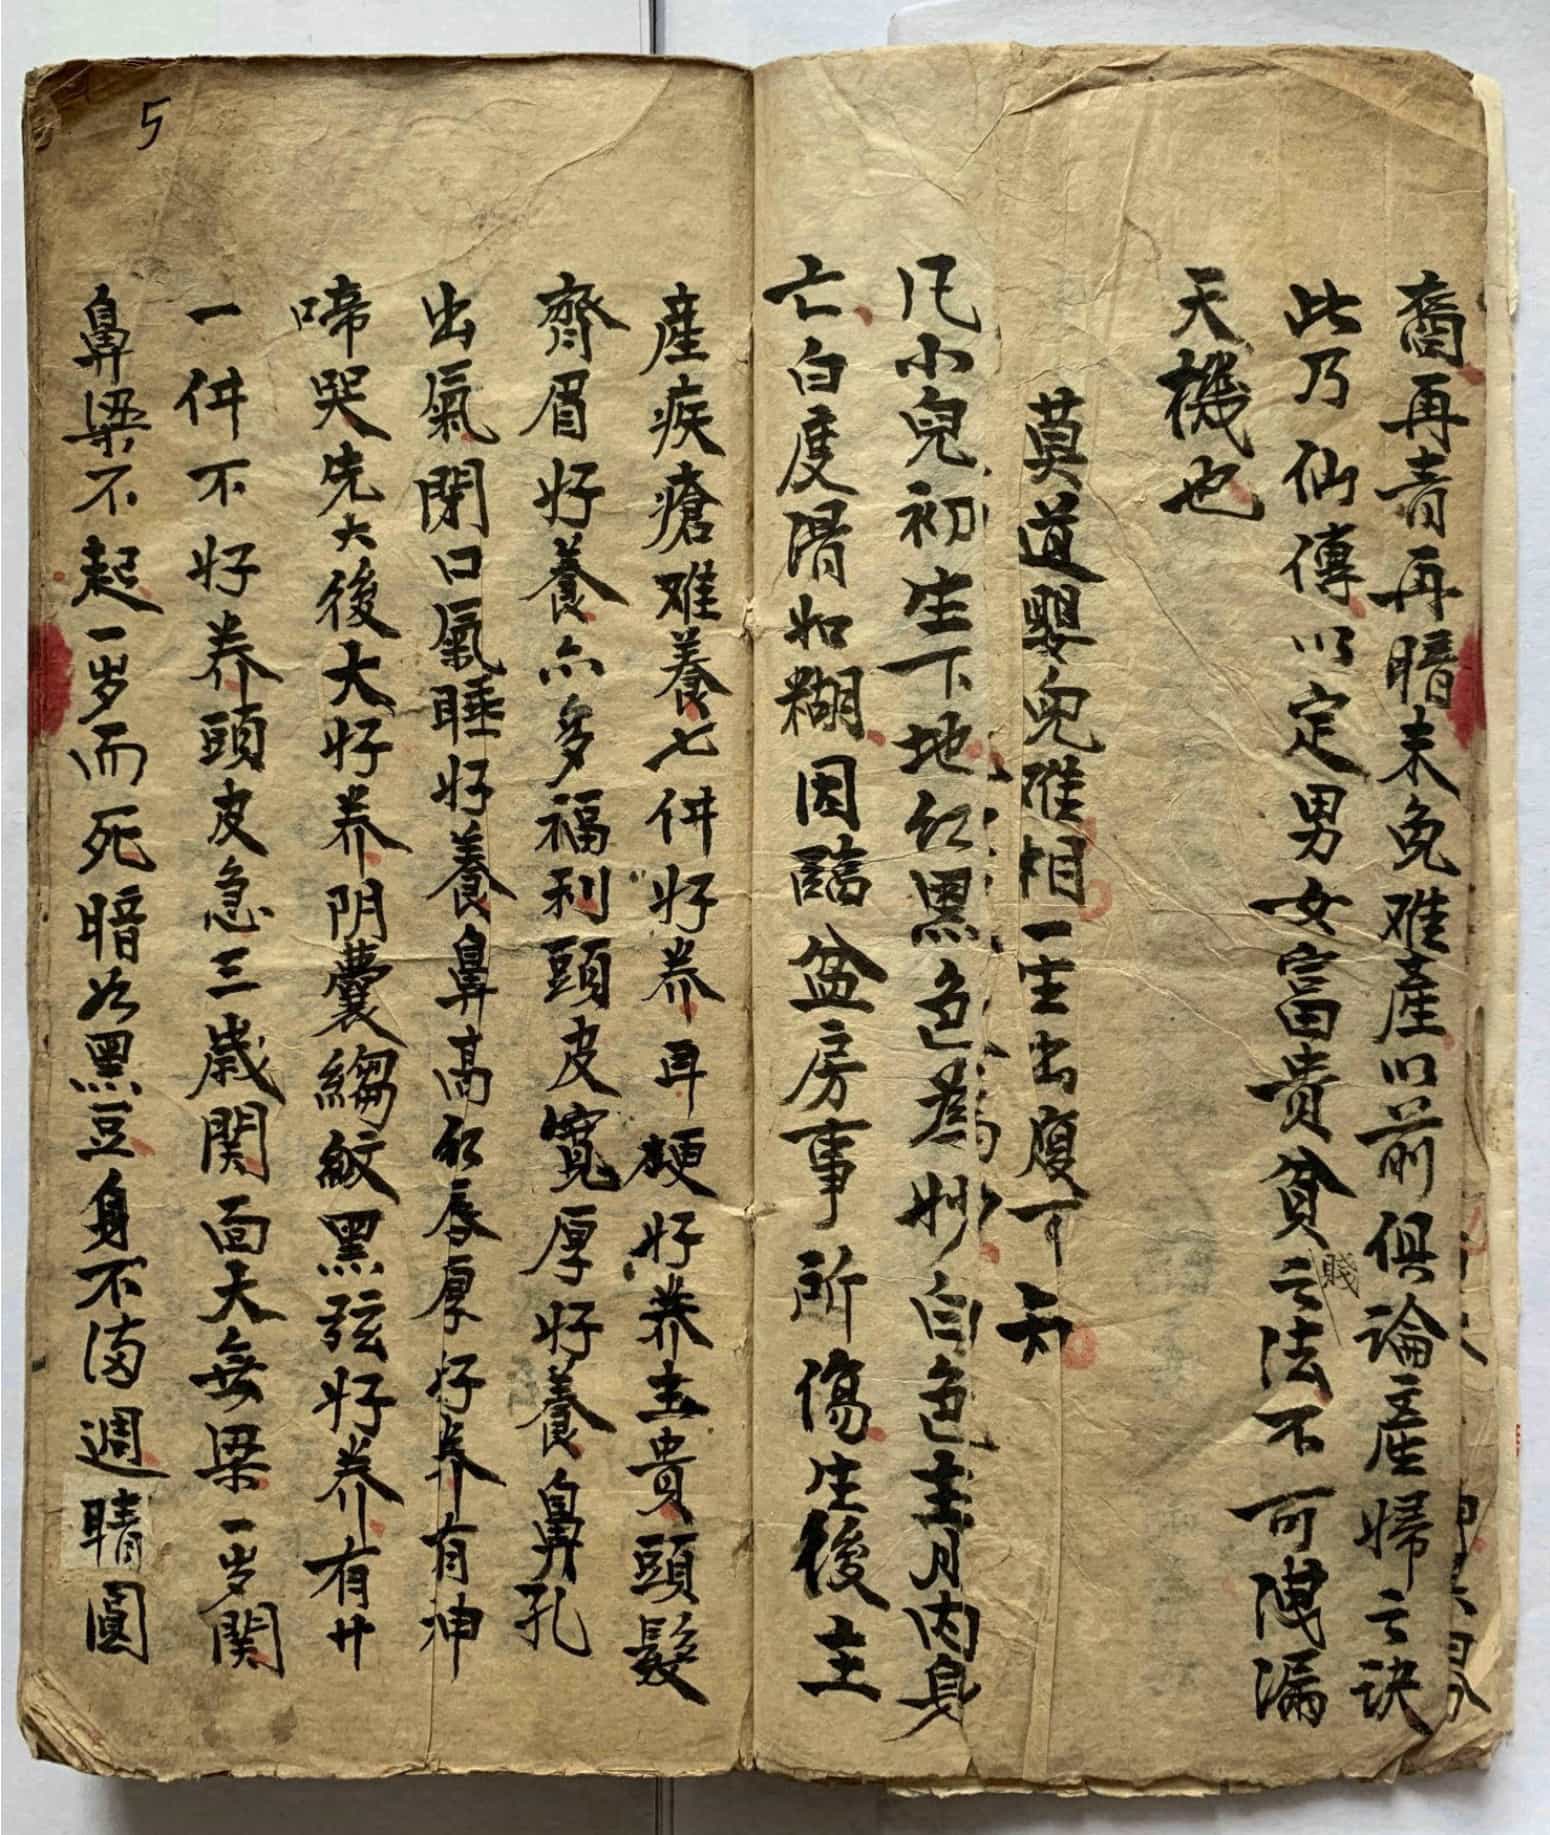 裔再青再暗未免难產以前俱論產婦之訣
此乃仙傳以定男女富貴貧之法不可洩漏
賤
天機也
莫道嬰兒难相一生出腹可知
凡小兒初生下地红黑色為妙白色主月内身
亡白度滑如糊因臨盆房事所傷生後主
産疾瘡难養七件好养耳硬好养主貴頭髮
齊眉好養六多福利頭皮寬厚好養鼻孔
出氣閉口氣睡好養鼻高红唇厚好养有神
啼哭先大後大好养阴囊縐紋黑弦好养有廿
一件不好养頭皮急三歲関面大無梁一岁関
鼻梁不起一岁而死暗如黑豆身不满週睛圓
5